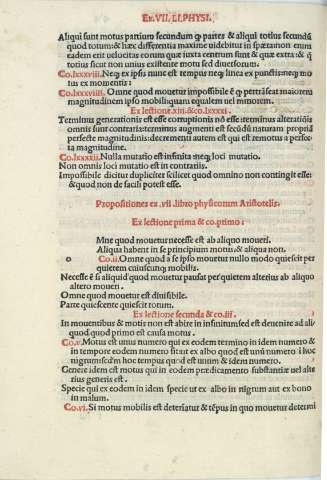 Ex.VII.LI.PHYSI.
Aliqui sunt motus partium secundum q partes & aliqui totius secundũ
quod totum: & hæc differentia maxime uidebitur in spæra: non enim
eadem erit velocitas eorum quæ iuxta centrum sunt & quæ extra: & q̃
totius sicut non unius existente motu sed diuersorum.
Co.lxxxviii. Neq; ex ipsis nunc est tempus neq; linea ex punctis: neq; mo
tus ex momentis:
Co.lxxxviiii. Omne quod mouetur impossibile ẽ q prętrãseat maiorem
magnitudinem ipso mobili: quam equalem uel minorem.
Ex lectione.xiii. & co.lxxxxi.
Terminus generationis est esse corruptionis nõ esse: terminus alterationis
omnis sunt contraria: terminus augmenti est secũdũ naturam propriã
perfectæ magnitudinis: decrementi autem est qui est remotus a perfec
ta magnitudine.
Co.lxxxxii. Nulla mutatio est infinita neq; loci mutatio.
Non omnis loci mutatio est in contrariis.
Impossibile dicitur dupliciter scilicet quod omnino non contingit esse:
& quod non de facili potest esse.
Propositiones ex .vii. libro physicorum Aristotelis.
Ex lectione prima & co. primo:
o
Mne quod mouetur necesse est ab aliquo moueri.
Aliqua habent in se principium motus: & aliqua non.
Co.ii. Omne quod a se ipso mouetur nullo modo quiescit per
quietem cuiuscunq; mobilis.
Necesse ẽ si aliquid quod mouetur pausat per quietem alterius ab aliquo
altero moueri.
Omne quod mouetur est diuisibile.
Parte quiescente quiescit totum.
Ex lectione secunda & co.iii.
In mouentibus & motis non est abire in infinitum sed est deuenire ad ali
quod: quod primo est causa motus.
Co.v. Motus est unus numero qui ex eodem termino in idem numero &
in tempore eodem numero fit: ut ex albo quod est unũ numero i hoc
nigrum secundum hoc tempus quod est unum & idem numero.
Genere idem est motus qui in eodem prædicamento substantiæ uel alte
rius generis est.
Specie qui ex eodem in idem specie ut ex albo in nigrum aut ex bono
in malum.
Co.vi. Si motus mobilis est determiatur & tẽpus in quo mouetur determi